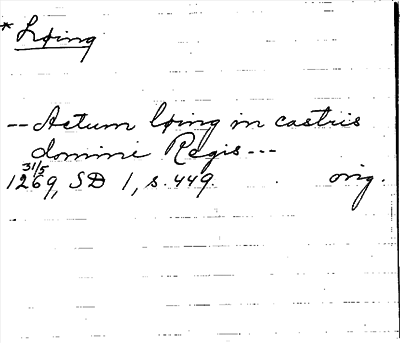 * Løing
-- Actum løing in castris
domini Regis ---
31/5
1269, SD 1, s. 449. orig.